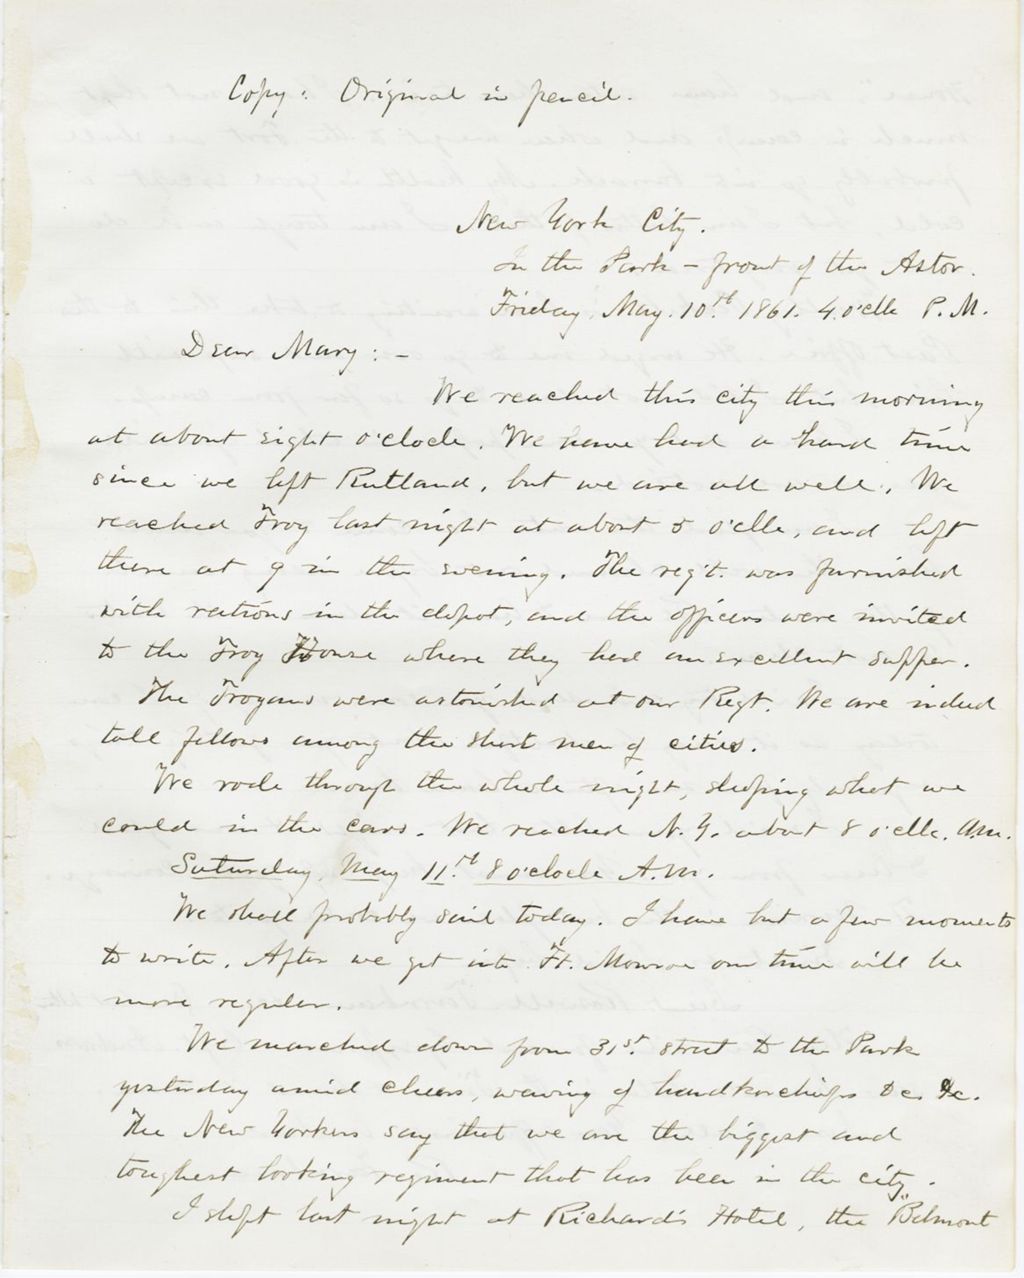 Copy: Original in pencil.
New York City.
In the Park – front of the Astor.
Friday, May. 10th 1861. 4 o'clk P. M.
Dear Mary: –
We reached this city this morning
at about eight o'clock. We have had a hard time
since we left Rutland, but we are all well. We
reached Troy last night at about 5 o'clk, and left
there at 9 in the evening. The reg't. was furnished
with rations in the depot, and the officers were invited
to the Troy House where they had an excellent supper.
The Trojans were astonished at our Regt. We are indeed
tall fellows among the short men of cities.
We rode through the whole night, sleeping what we
could in the cars. We reached N. Y. about 8 o'clk. A.M.
Saturday, May 11th 8 o'clock A.M.
We shall probably sail today. I have but a few moments
to write. After we get into Ft. Monroe our time will be
more regular.
We marched down from 31st. street to the Park
yesterday amid cheers, waving of handkerchiefs &c. &c.
The New Yorkers say that we are the biggest and
toughest looking regiment that has been in the city.
I slept last night at Richard's Hotel, the "Belmont